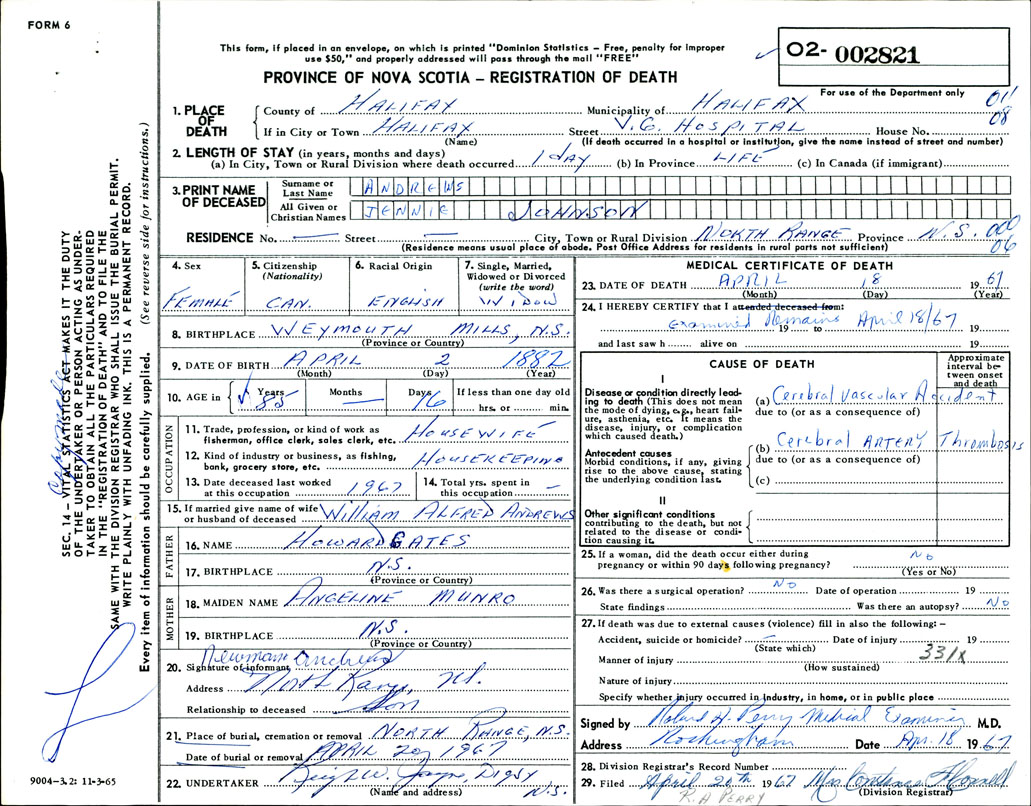 FORM 6
This form, if placed in an envelope, on which is printed "Dominion Statistics – Free, penalty for improper
use $50," and properly addressed will pass through the mail "FREE"
PROVINCE OF NOVA SCOTIA – REGISTRATION OF DEATH
02- 002821
For use of the Department only
01
08
1. PLACE OF DEATH
County of HALIFAX Municipality of HALIFAX
If in City or Town HALIFAX Street V.G. HOSPITAL House No.
(Name) (If death occurred in a hospital or institution, give the name instead of street and number)
2. LENGTH OF STAY (in years, months and days)
(a) In City, Town or Rural Division where death occurred 1 day (b) In Province LIFE (c) In Canada (if immigrant)
3. PRINT NAME OF DECEASED
Surname or Last Name ANDREWS
All Given or Christian Names JENNIE JOHNSON
RESIDENCE No. — Street — City, Town or Rural Division NORTH RANGE Province N.S. 000
06
(Residence means usual place of abode. Post Office Address for residents in rural parts not sufficient)
4. Sex FEMALE
5. Citizenship (Nationality) CAN.
6. Racial Origin ENGLISH
7. Single, Married, Widowed or Divorced (write the word) WIDOW
8. BIRTHPLACE WEYMOUTH MILLS, N.S.
(Province or Country)
9. DATE OF BIRTH APRIL 2 1882
(Month) (Day) (Year)
10. AGE in Years 85 Months — Days 16 If less than one day old hrs. or min.
OCCUPATION
11. Trade, profession, or kind of work as fisherman, office clerk, sales clerk, etc. HOUSEWIFE
12. Kind of industry or business, as fishing, bank, grocery store, etc. HOUSEKEEPING
13. Date deceased last worked at this occupation 1967
14. Total yrs. spent in this occupation —
15. If married give name of wife or husband of deceased William ALFRED ANDREWS
FATHER
16. NAME HOWARD GATES
17. BIRTHPLACE N.S.
(Province or Country)
MOTHER
18. MAIDEN NAME ANGELINE MUNRO
19. BIRTHPLACE N.S.
(Province or Country)
20. Signature of informant Newman Andrews
Address North Range, N.S.
Relationship to deceased Son
21. Place of burial, cremation or removal NORTH RANGE, N.S.
Date of burial or removal APRIL 20, 1967
22. UNDERTAKER W. Jayne, DIGBY N.S.
(Name and address)
MEDICAL CERTIFICATE OF DEATH
23. DATE OF DEATH APRIL 18 1967
(Month) (Day) (Year)
24. I HEREBY CERTIFY that I attended deceased from:
Examined Remains 19 to April 18/67 19
and last saw h alive on 19
CAUSE OF DEATH
Approximate interval between onset and death
I
Disease or condition directly leading to death (This does not mean the mode of dying, e.g., heart failure, asthenia, etc. It means the disease, injury, or complication which caused death.)
(a) Cerebral Vascular Accident
due to (or as a consequence of)
Antecedent causes
Morbid conditions, if any, giving rise to the above cause, stating the underlying condition last.
(b) Cerebral ARTERY Thrombosis
due to (or as a consequence of)
(c)
II
Other significant conditions
contributing to the death, but not related to the disease or condition causing it.
25. If a woman, did the death occur either during pregnancy or within 90 days following pregnancy? No
(Yes or No)
26. Was there a surgical operation? No Date of operation 19
State findings Was there an autopsy? No
27. If death was due to external causes (violence) fill in also the following: –
Accident, suicide or homicide? – Date of injury 19
(State which)
331X
Manner of injury
(How sustained)
Nature of injury
Specify whether injury occurred in industry, in home, or in public place
Signed by Robert H. Perry Medical Examiner M.D.
Address Rockingham Date Apr. 18 1967
28. Division Registrar's Record Number
29. Filed April 20th 1967 Mrs Constance
(Division Registrar)
R.A PERRY
SEC. 14 – VITAL STATISTICS ACT MAKES IT THE DUTY
OF THE UNDERTAKER OR PERSON ACTING AS UNDER-
TAKER TO OBTAIN ALL THE PARTICULARS REQUIRED
IN THE "REGISTRATION OF DEATH" AND TO FILE THE
SAME WITH THE DIVISION REGISTRAR WHO SHALL ISSUE THE BURIAL PERMIT.
WRITE PLAINLY WITH UNFADING INK. THIS IS A PERMANENT RECORD.
Every item of information should be carefully supplied. (See reverse side for instructions.)
9004–3.2: 11-3-65